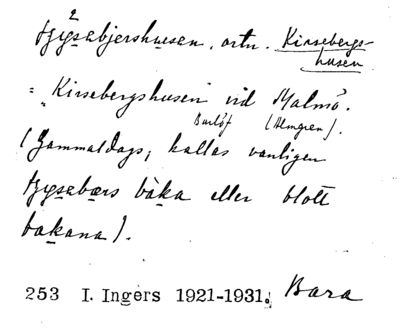 tjysabjershusen, ortn. Kirsebergs-
husen
= "Kirsebergshusen" vid Malmö.
Burlöf (Almgren).
(Gammaldags; kallas vanligen
tjysabærs båka eller blott
bakana).
253 I. Ingers 1921-1931. Bara